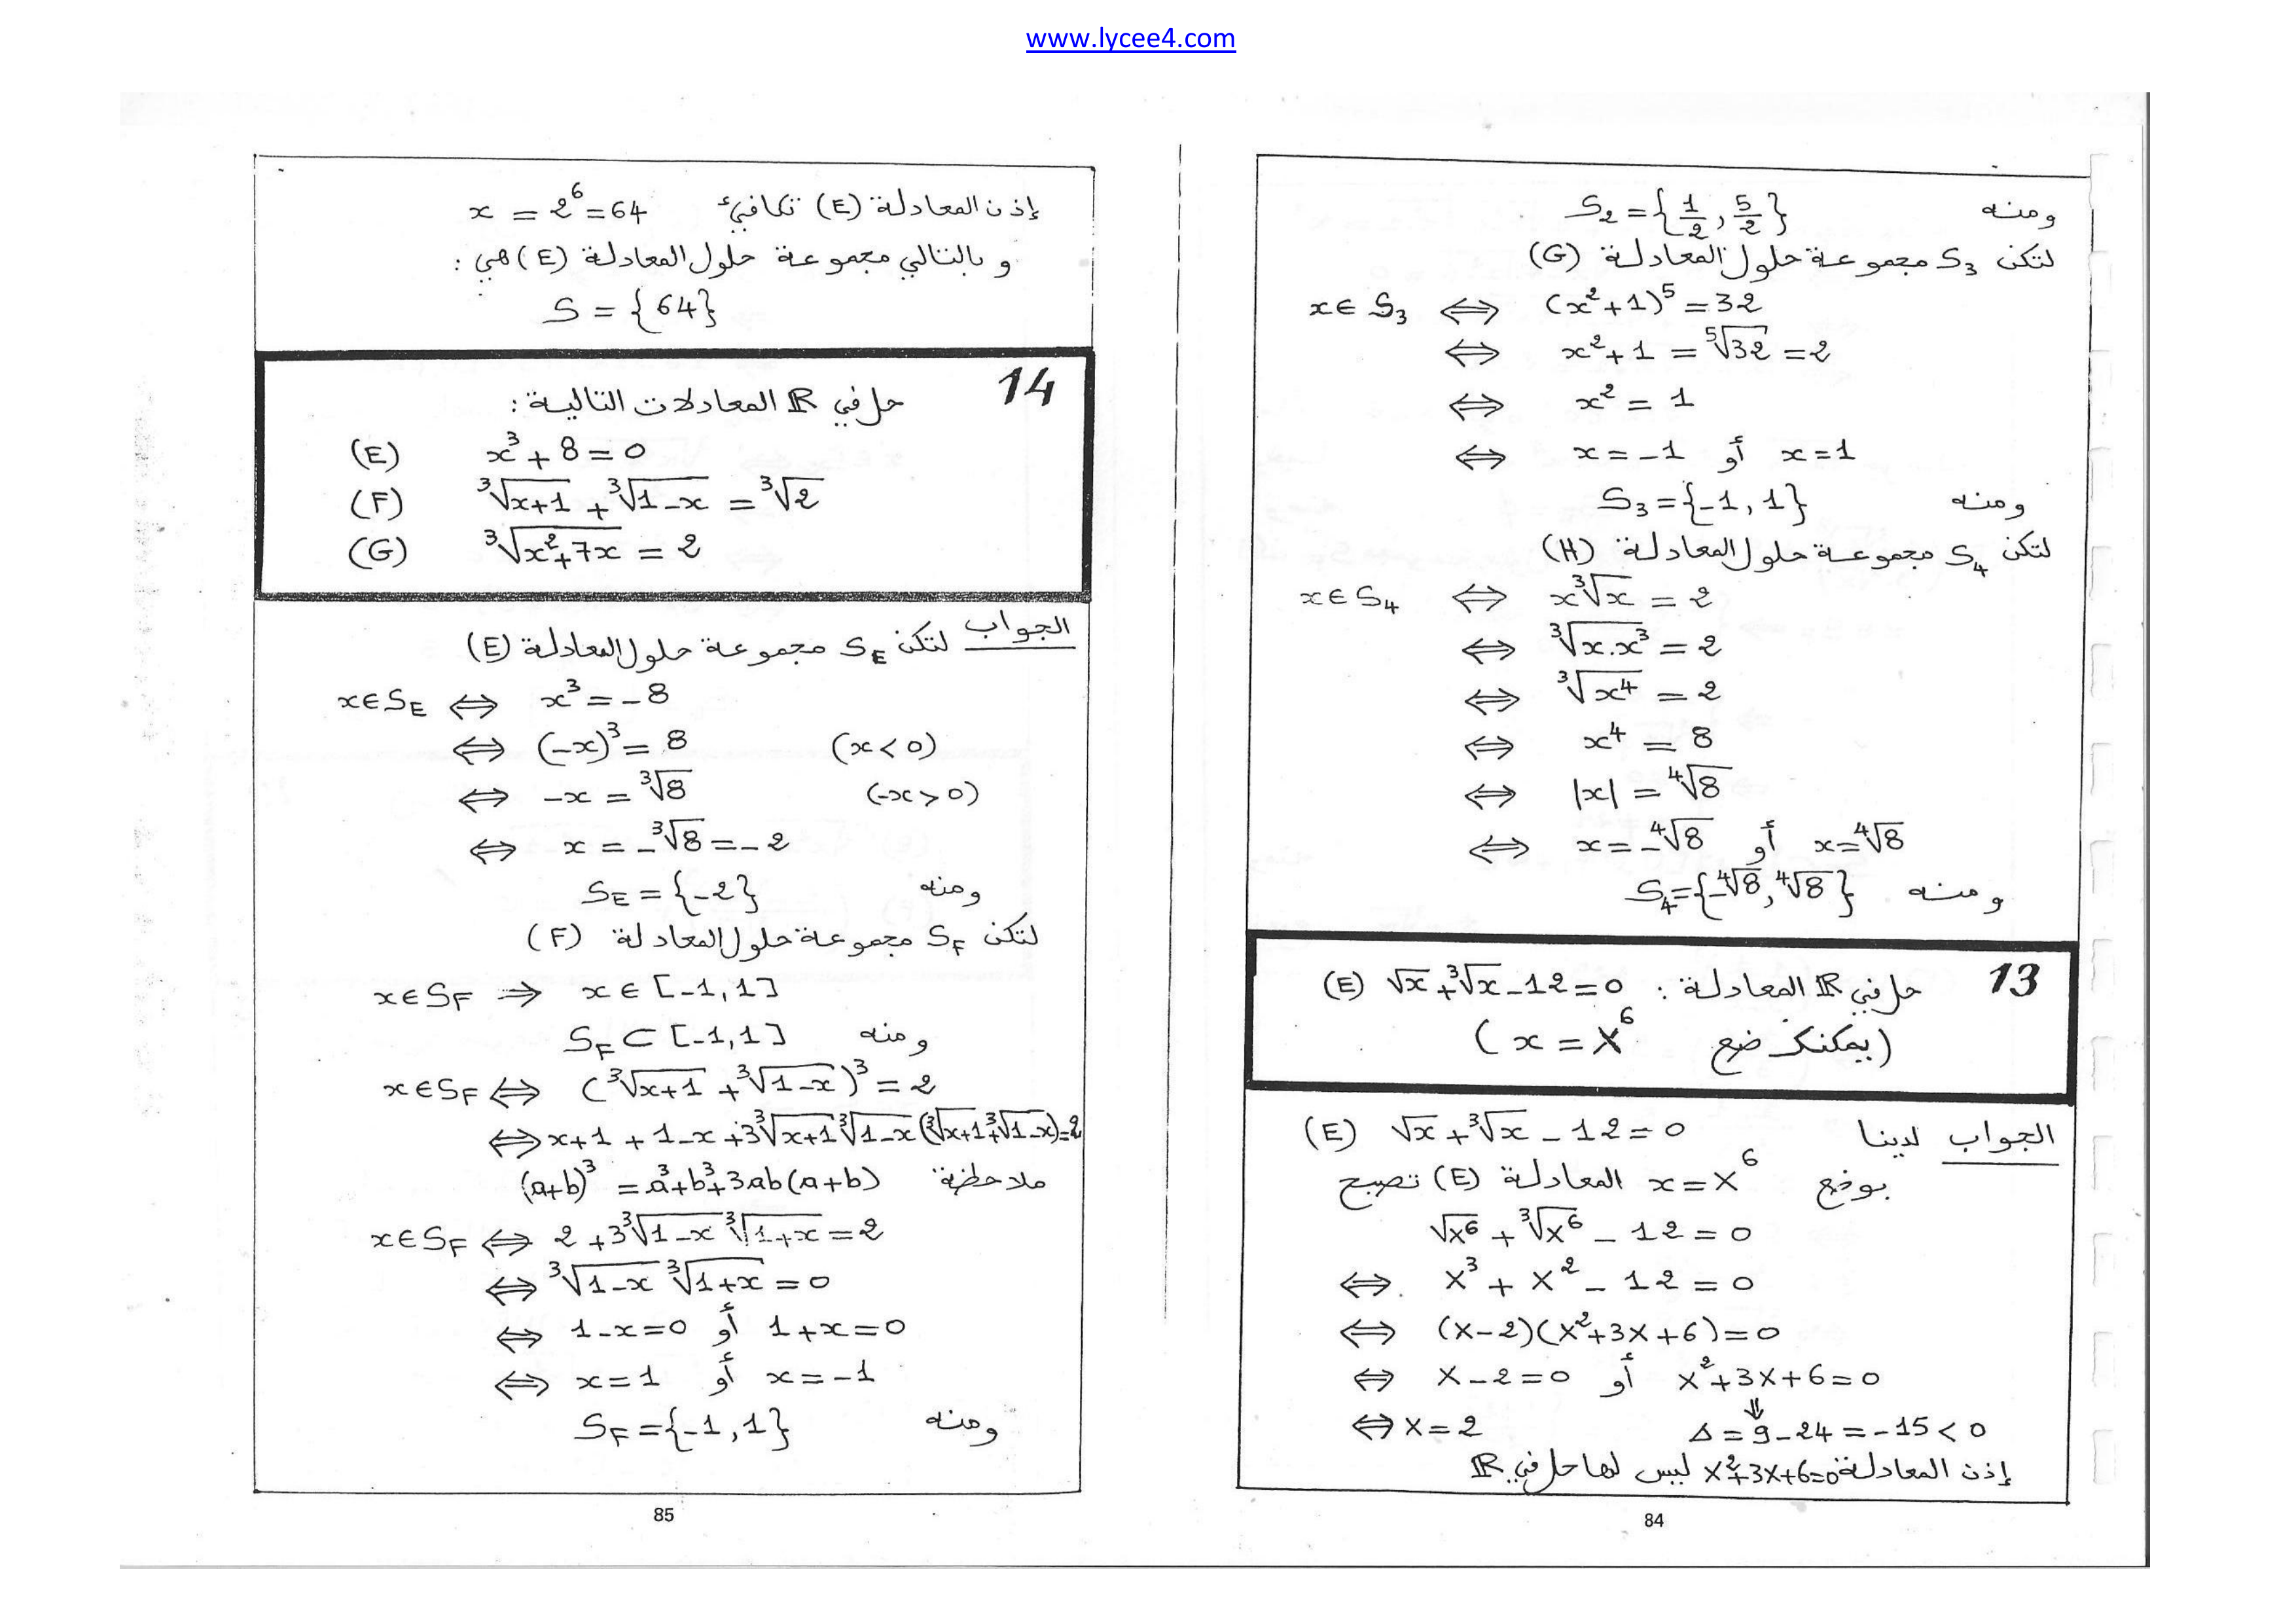 www.lycee4.com
ومنه S₂ = {1/2, 5/2}
لتكن S₃ مجموعة حلول المعادلة (G)
x ∈ S₃ ⟺ (x²+1)⁵ = 32
⟺ x²+1 = ⁵√32 = 2
⟺ x² = 1
⟺ x = -1 أو x = 1
ومنه S₃ = {-1, 1}
لتكن S₄ مجموعة حلول المعادلة (H)
x ∈ S₄ ⟺ x ³√x = 2
⟺ ³√(x.x³) = 2
⟺ ³√(x⁴) = 2
⟺ x⁴ = 8
⟺ |x| = ⁴√8
⟺ x = -⁴√8 أو x = ⁴√8
ومنه S₄ = {-⁴√8, ⁴√8}
13 حل في ℝ المعادلة : (E) √x + ³√x - 12 = 0
(يمكنك ضع x = X⁶)
الجواب لدينا (E) √x + ³√x - 12 = 0
بوضع x = X⁶ المعادلة (E) تصبح
√X⁶ + ³√X⁶ - 12 = 0
⟺ X³ + X² - 12 = 0
⟺ (X-2)(X²+3X+6) = 0
⟺ X-2 = 0 أو X²+3X+6 = 0
⇓
⟺ X = 2 Δ = 9-24 = -15 < 0
إذن المعادلة X²+3X+6=0 ليس لها حل في ℝ
84
إذن المعادلة (E) تكافئ x = 2⁶ = 64
و بالتالي مجموعة حلول المعادلة (E) هي :
S = {64}
14 حل في ℝ المعادلات التالية :
(E) x³ + 8 = 0
(F) ³√(x+1) + ³√(1-x) = ³√2
(G) ³√(x²+7x) = 2
الجواب لتكن S_E مجموعة حلول المعادلة (E)
x ∈ S_E ⟺ x³ = -8
⟺ (-x)³ = 8 (x < 0)
⟺ -x = ³√8 (-x > 0)
⟺ x = -³√8 = -2
ومنه S_E = {-2}
لتكن S_F مجموعة حلول المعادلة (F)
x ∈ S_F ⟹ x ∈ [-1, 1]
ومنه S_F ⊂ [-1, 1]
x ∈ S_F ⟺ (³√(x+1) + ³√(1-x))³ = 2
⟺ x+1 + 1-x + 3 ³√(x+1) ³√(1-x) (³√(x+1) + ³√(1-x)) = 2
ملاحظة (a+b)³ = a³+b³+3ab(a+b)
x ∈ S_F ⟺ 2 + 3 ³√(1-x) ³√(1+x) = 2
⟺ ³√(1-x) ³√(1+x) = 0
⟺ 1-x = 0 أو 1+x = 0
⟺ x = 1 أو x = -1
ومنه S_F = {-1, 1}
85